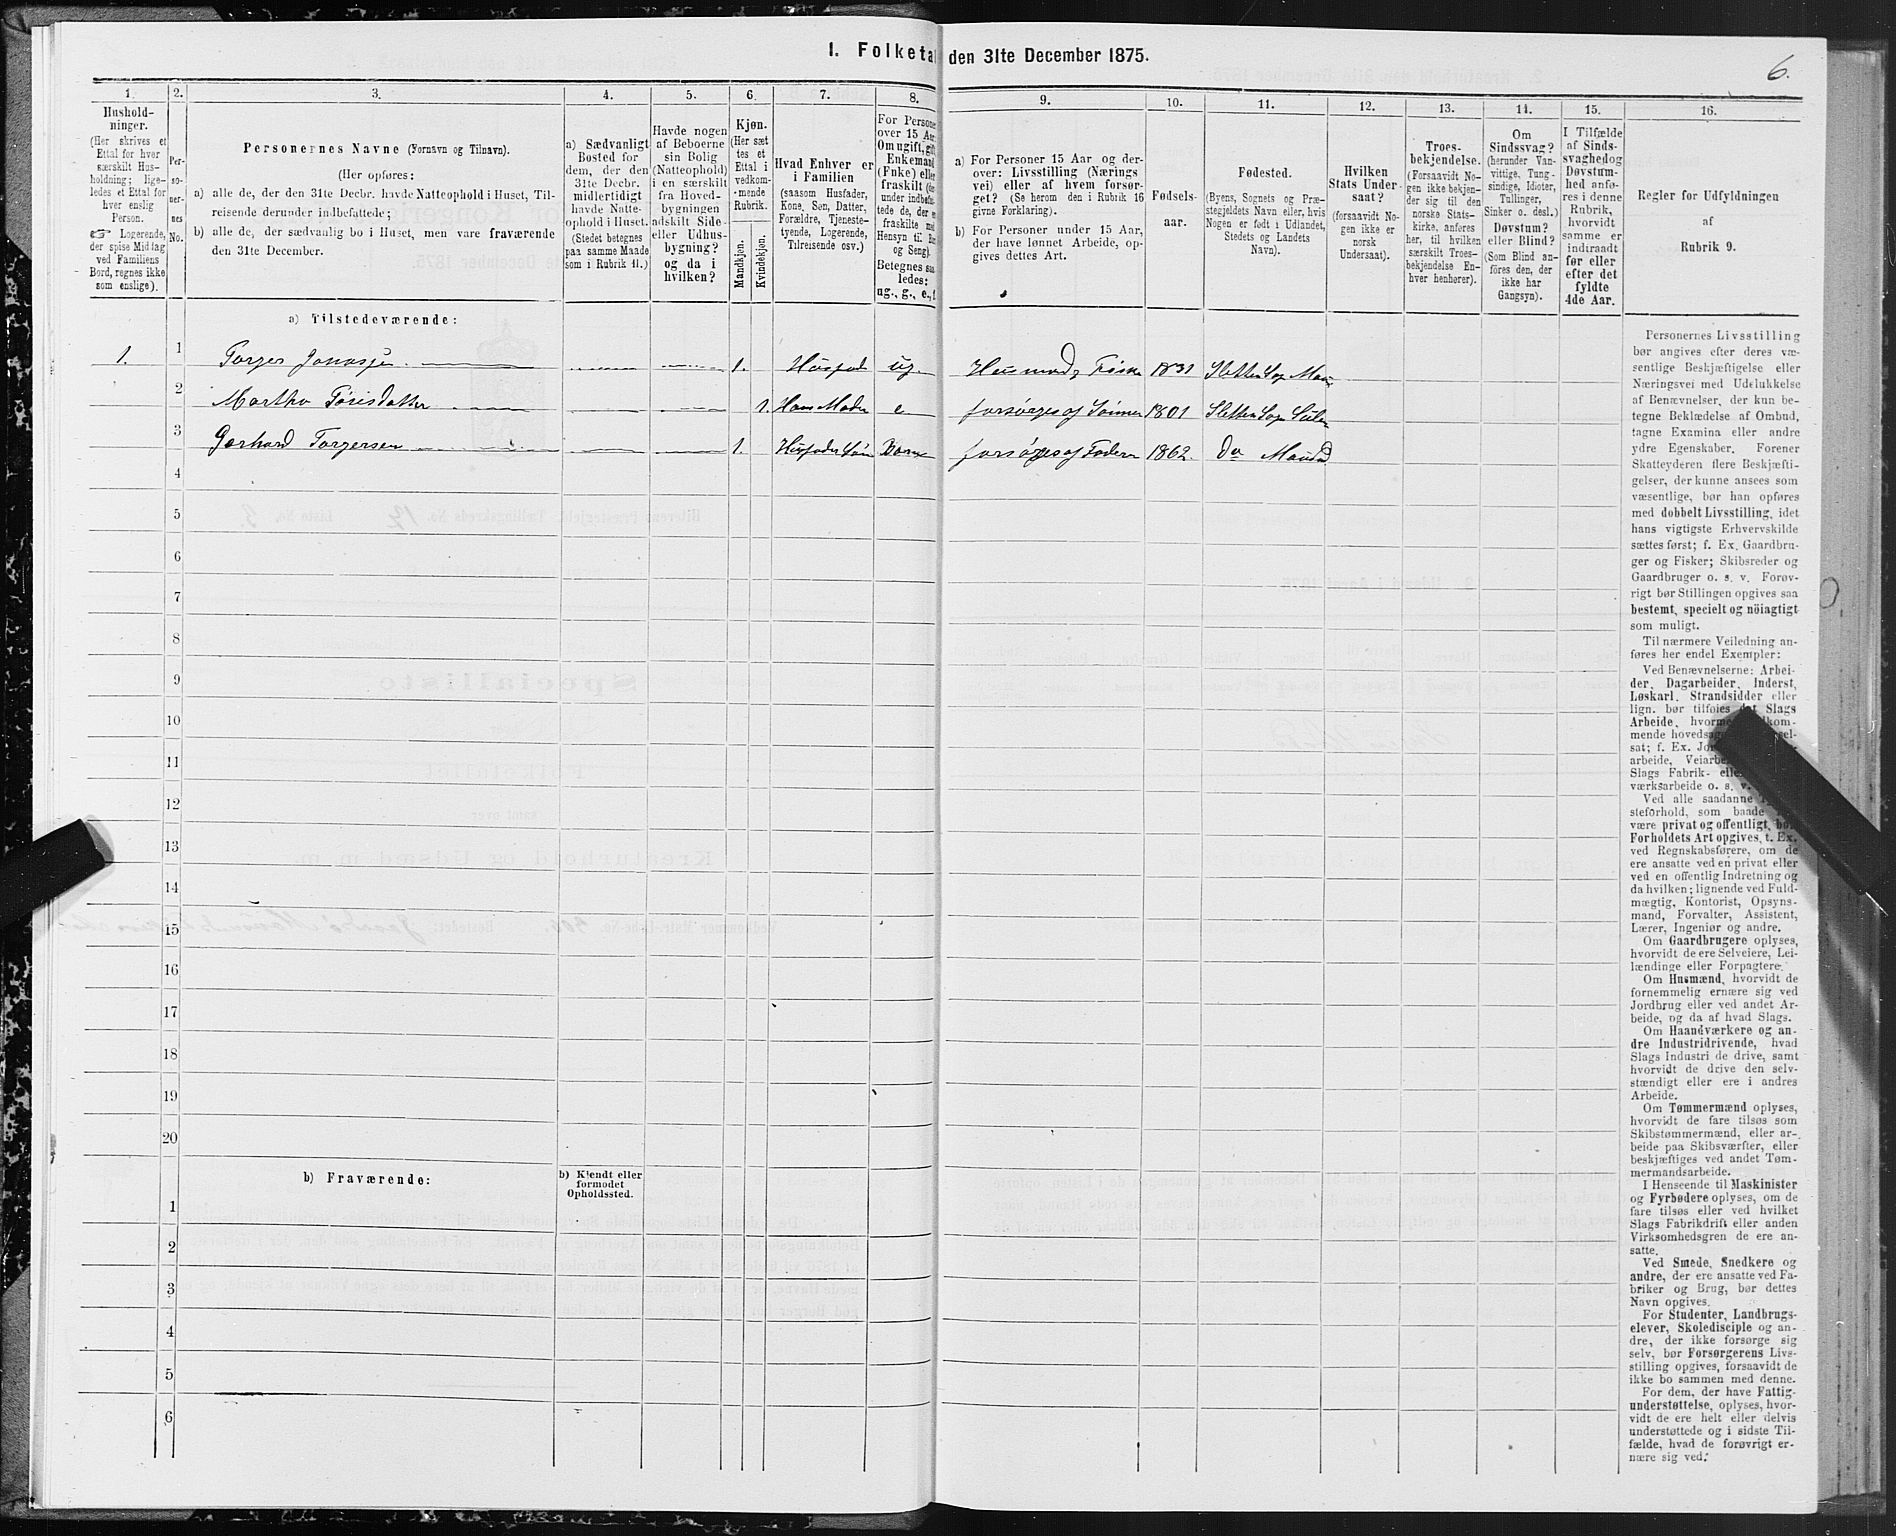 I. Folketal den 31te December 1875.
6.
1. 2. 3. 4. 5. 6. 7. 8. 9. 10. 11. 12. 13. 14. 15. 16.
Hushold-
ninger.
(Her skrives et
Ettal for hver
særskilt Hus-
holdning; lige-
ledes et Ettal for
hver enslig
Person.
Logerende,
der spise Middag
ved Familiens
Bord, regnes ikke
som enslige).
Per-
so-
ner-
nes
No.
Personernes Navne (Fornavn og Tilnavn).
(Her opføres:
a) alle de, der den 31te Decbr. havde Natteophold i Huset, Til-
reisende derunder indbefattede;
b) alle de, der sædvanlig bo i Huset, men vare fraværende
den 31te December.
a) Sædvanligt
Bosted for
dem, der den
31te Decbr.
midlertidigt
havde Natte-
ophold i Huset.
(Stedet betegnes
paa samme Maade
som i Rubrik 11.)
Havde nogen
af Beboerne
sin Bolig
(Natteophold)
i en særskilt
fra Hoved-
bygningen
adskilt Side-
eller Udhus-
bygning?
og da i
hvilken?
Kjøn.
(Her sæt
tes et
Ettal i
vedkom-
mende
Rubrik.
Mandkjøn.
Kvindekjøn.
Hvad Enhver er
i Familien
(saasom Husfader,
Kone, Søn, Datter,
Forældre, Tjeneste-
tyende, Logerende,
Tilreisende osv.)
For Persone
over 15 Aar
Om ugift, gift
Enkemand
(Enke) elle
fraskilt
under indbefat
tede de, der
fraskilte med
Hensyn til
og Seng).
Betegnes saa
ledes:
ug., g., e., f.
a) For Personer 15 Aar og der-
over: Livsstilling (Nærings
vei) eller af hvem forsør-
get? (Se herom den i Rubrik 16
givne Forklaring).
b) For Personer under 15 Aar,
der have lønnet Arbeide, op-
gives dettes Art.
Fødsels-
aar.
Fødested.
(Byens, Sognets og Præ-
stegjeldets Navn eller, hvis
Nogen er født i Udlandet,
Stedets og Landets
Navn).
Hvilken
Stats Under-
saat?
(forsaavidt No-
gen ikke er
norsk
Undersaat).
Troes-
bekjendelse.
(Forsaavidt No-
gen ikke bekjen-
der sig til den
norske Stats-
kirke, anføres
her, til hvilken
særskilt Troes-
bekjendelse En-
hver henhører).
Om
Sindssvag?
(herunder Van-
vittige, Tung-
sindige, Idioter,
Tullinger,
Sinker o. desl.)
Døvstum?
eller Blind?
(Som Blind an-
føres den, der
ikke har
Gangsyn).
I Tilfælde
af Sinds-
svaghed og
Døvstum-
hed anfø-
res i denne
Rubrik,
hvorvidt
samme er
indtraadt
før eller
efter det
fyldte
4de Aar.
Regler for Udfyldningen
af
Rubrik 9.
a) Tilstedeværende:
1. 1 Torger Jonassen 1. Husfad ug. Husmand, Fisker 1831
2 Martha Tørisdatter 1. Hans Moder e forsørges af Sønnen 1801
3 Gerhard Torgersen 1. Husfaders Søn Barn forsørges af Faderen 1862. do
4
5
6
7
8
9
10
11
12
13
14
15
16
17
18
19
20
b) Fraværende:
b) Kjendt eller
formodet
Opholdssted.
1
2
3
4
5
6
Personernes Livsstilling
bør angives efter deres væ-
sentlige Beskjæftigelse eller
Næringsvei med Udelukkelse
af Benævnelser, der kun be-
tegne Beklædelse af Ombud,
tagne Examina eller andre
ydre Egenskaber. Forener
Skatteyderen flere Beskjæfti-
gelser, der kunne ansees som
væsentlige, bør han opføres
med dobbelt Livsstilling, idet
hans vigtigste Erhvervskilde
sættes først; f. Ex. Gaardbru-
ger og Fisker; Skibsreder og
Gaardbruger o. s. v. Forøv-
rigt bør Stillingen opgives saa
bestemt, specielt og nöiagtigt
som muligt.
Til nærmere Veiledning an-
føres her endel Exempler:
Ved Benævnelserne: Arbei-
der, Dagarbeider, Inderst,
Løskarl, Strandsidder eller
lign. bør tilføies det Slags
Arbeide,
mende
sat; f. Ex.
arbeide,
Slags Fabrik-
værksarbeide o. s. v.
Ved alle saadanne
steforhold, som baade
være privat og offentligt, bør
Forholdets Art opgives, t. Ex.
ved Regnskabsførere, om de
ere ansatte ved en privat eller
ved en offentlig Indretning og
da hvilken; lignende ved Fuld-
mægtig, Kontorist, Opsyns-
mand, Forvalter, Assistent,
Lærer, Ingeniør og andre.
Om Gaardbrugere oplyses,
hvorvidt de ere Selveiere, Lei-
lændinge eller Forpagtere.
Om Husmænd, hvorvidt de
fornemmelig ernære sig ved
Jordbrug eller ved andet Ar-
beide, og da af hvad Slags.
Om Haandværkere og an-
dre Industridrivende, hvad
Slags Industri de drive, samt
hvorvidt de drive den selv-
stændigt eller ere i andres
Arbeide.
Om Tømmermænd oplyses,
hvorvidt de fare tilsøs som
Skibstømmermænd, eller ar-
beide paa Skibsværfter, eller
beskjæftiges ved andet Tøm-
mermandsarbeide.
I Henseende til Maskinister
og Fyrbødere oplyses, om de
fare tilsøs eller ved hvilket
Slags Fabrikdrift eller anden
Virksomhedsgren de ere an-
satte.
Ved Smede, Snedkere og
andre, der ere ansatte ved Fa-
briker og Brug, bør dettes
Navn opgives.
For Studenter, Landbrugs-
elever, Skoledisciple og an-
dre, der ikke forsørge sig
selv, bør Forsørgerens Livs-
stilling opgives, forsaavidt de
ikke bo sammen med denne.
For dem, der have Fattig-
understøttelse, oplyses, hvor-
vidt de ere helt eller delvis
understøttede og i sidste Til-
fælde, hvad de forøvrigt er-
nære sig ved.